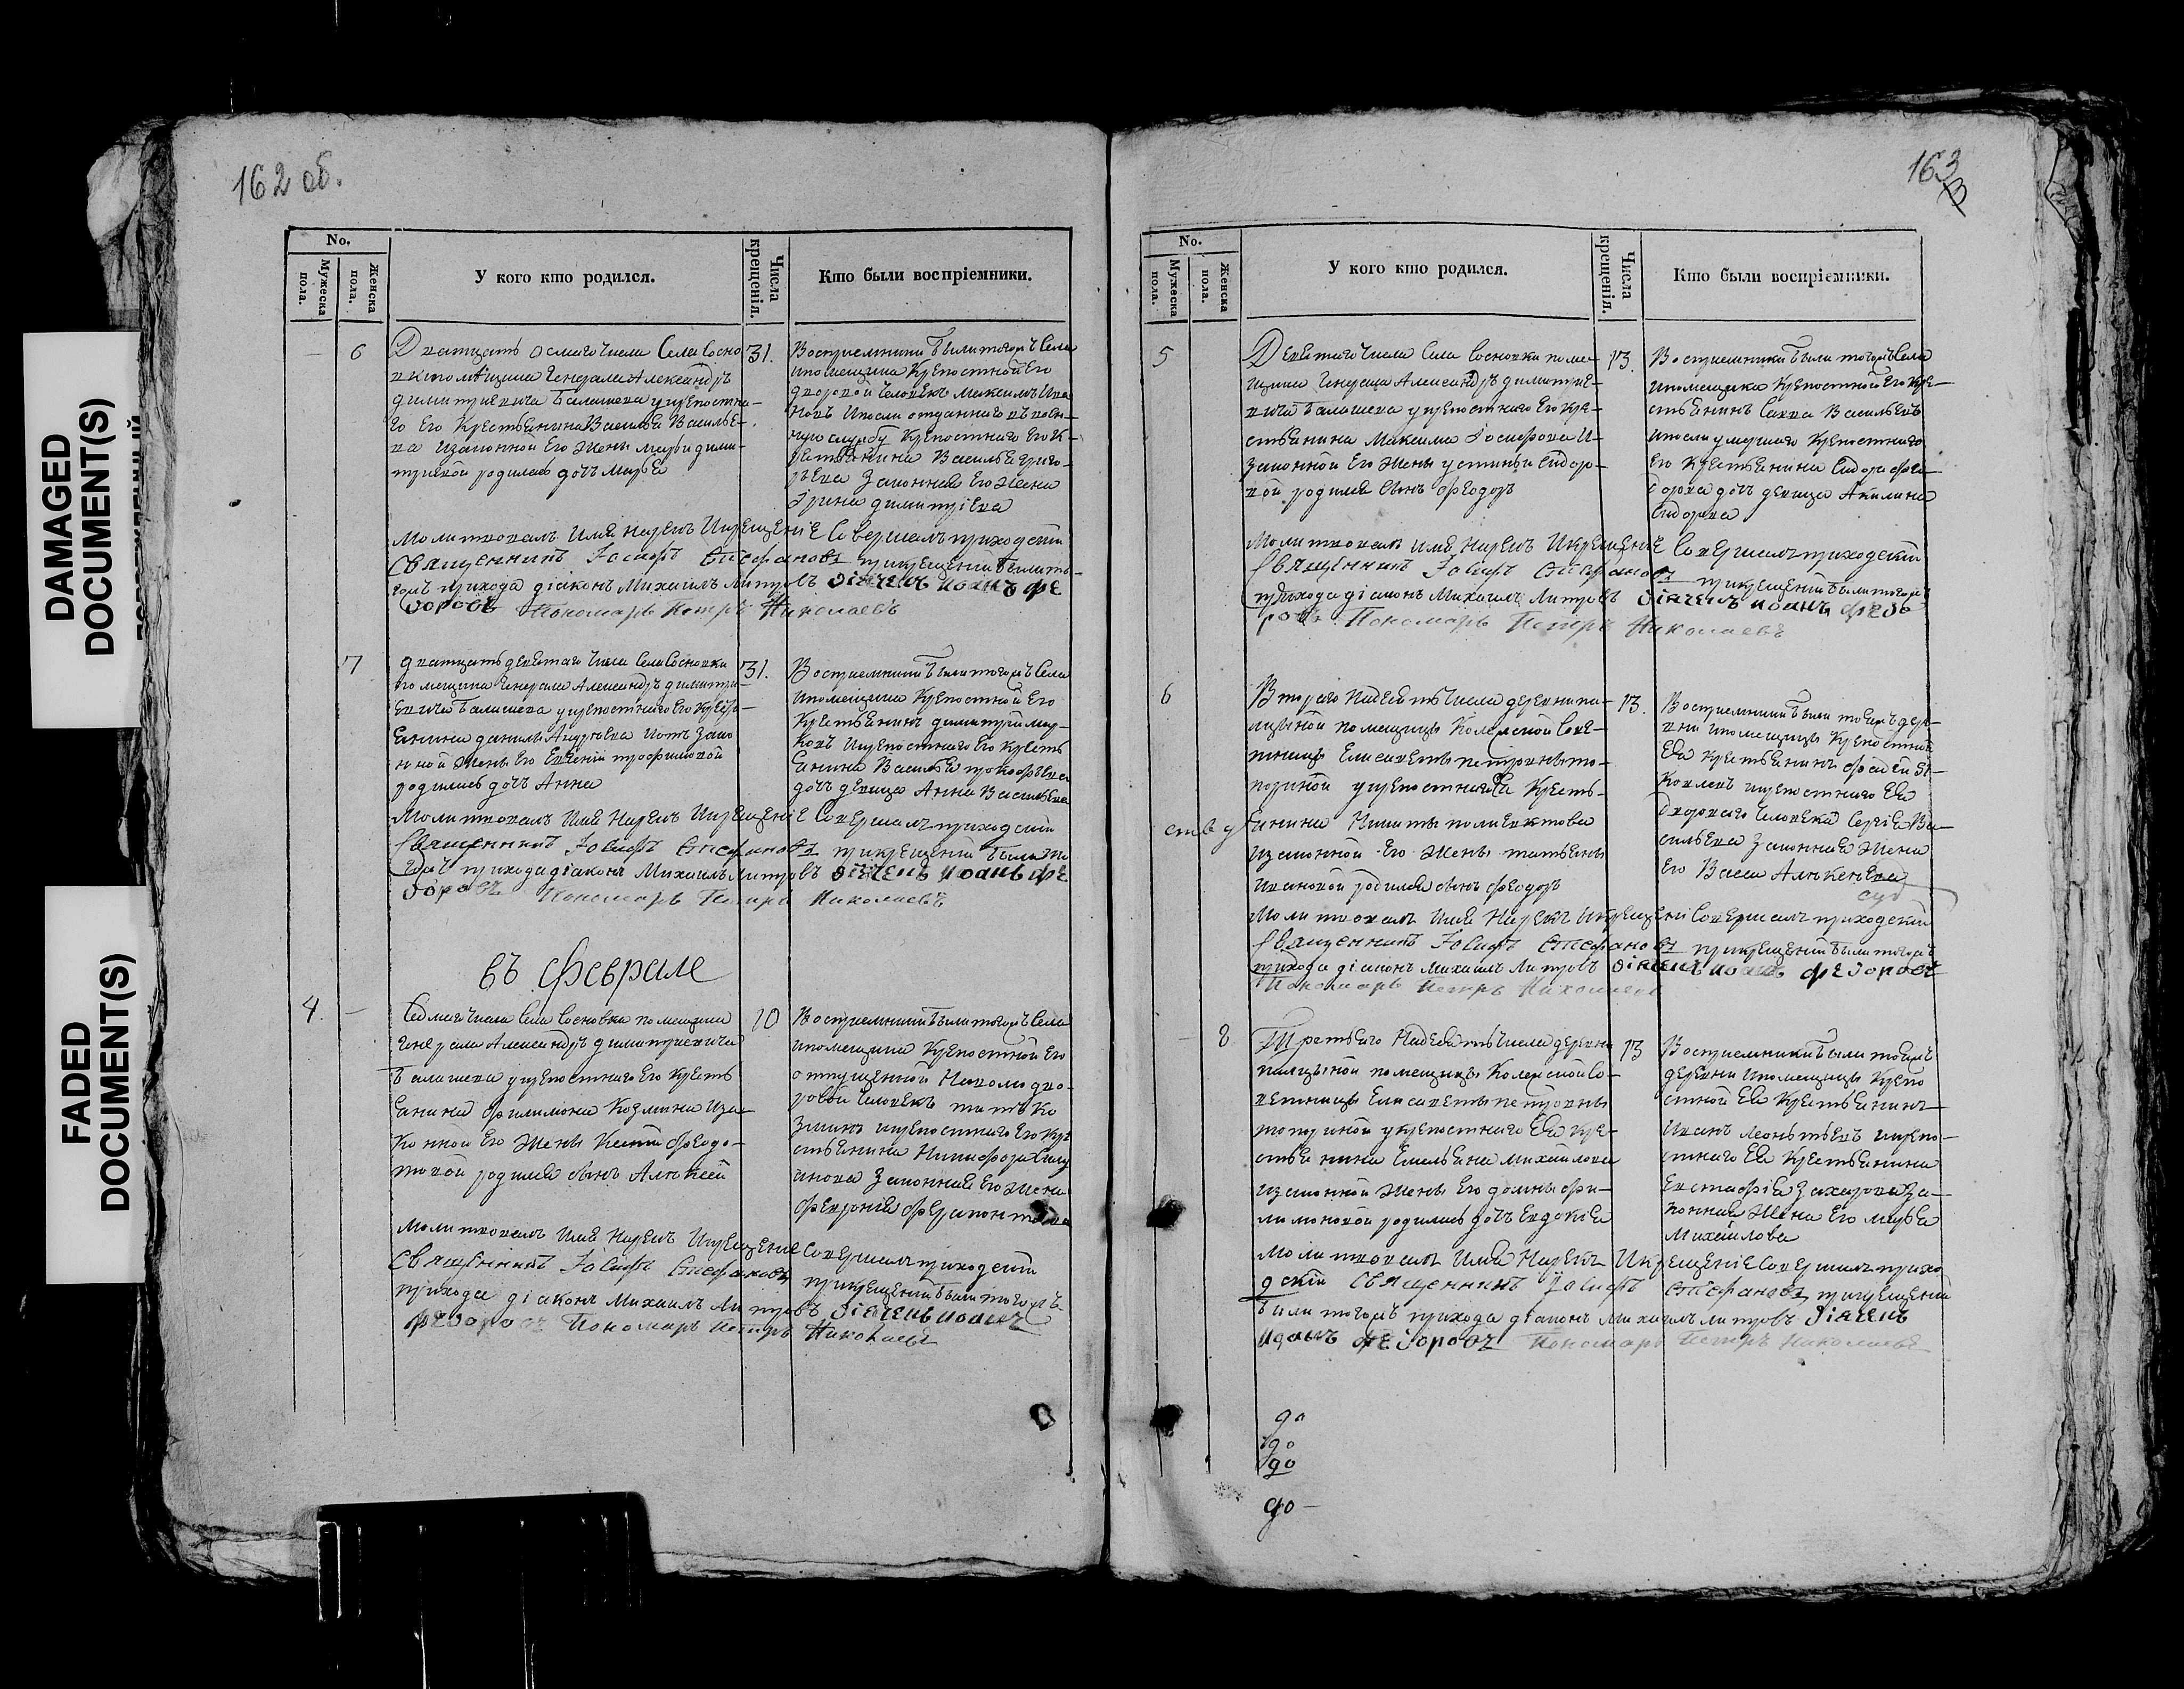 162 об.
No.
Мужеска пола.
Женска пола.
У кого кто родился.
Числа крещенія.
Кто были воспріемники.
6
Дватцать осмаго числа Села Сосно
вки помѣщика Генерала Александръ
димитриевича Балашева укрепостна-
го Его Крестьянина Василья Василье-
ва Изаконной Его Жены марьи дими-
триевой родилась дочь Марья
31.
Восприемники были тогожъ Села
ипомещика Крепостной Его
дворовой Человекъ Максимъ Ива
новъ Ипосли отданнаго въ воен-
ную службу Крепостнаго Его К-
рестьянина Василья Григо-
рьева Законная Его Жена
Ирина димитриева
Молитвовалъ Имя нарекъ Икрещение Совершалъ приходскій
Священникъ Іосифъ Стефановъ прикрещеніи были то-
гожъ прихода діаконъ Михаилъ Митровъ діячекъ Иоанъ Фе
доровъ Пономарь Петръ Николаевъ
7
дватцать девятаго числа Села Сосновки
помещика Генерала Александръ димитри-
евича Балашева укрепостнаго Его Крест-
янина данилы Андреева Изъ зако
нной Жены Его Евгении трофимовой
родилась дочь Анна
31.
Восприемники были тогожъ Села
ипомещика Крепостной Его
Крестьянинъ димитрий мар-
ковъ Икрепостнаго Его Кресть
янина Василья прокофьева
дочь девица Анна Васильева
Молитвовалъ Имя Нарекъ Икрещение Совершалъ приходскій
Священникъ Іосифъ Стефановъ прикрещеніи были то
гожъ прихода діаконъ Михаилъ Митровъ діячекъ Иоанъ Фе
доровъ Пономарь Петръ Николаевъ
въ Феврале
4
Седмаго числа Села Сосновки помещика
Генерала Александръ димитриевича
Балашева укрепостнаго Его Кресть
янина Филимона Козмина Иза-
конной Его Жены Ксении Федо-
товой родился сынъ Алексей
10
Восприемники были тогожъ Села
ипомещика Крепостной Его
отпущенной Наволю дво-
ровой Человекъ титъ Ко
зминъ икрепостнаго Его Кре
стьянина Никифора Силу
анова Законная Его Жена
Феврония Ферапонтова
Молитвовалъ Имя Нарекъ Икрещение Совершалъ приходскій
Священникъ Іосифъ Стефановъ прикрещеніи были тогожъ
прихода діаконъ Михаилъ Митровъ діячекъ Иоанъ
Федоровъ Пономарь Петръ Николаевъ
163
No.
Мужеска пола.
Женска пола.
У кого кто родился.
Числа крещенія.
Кто были воспріемники.
5
Девятаго числа Села Сосновки поме-
щика Генерала Александръ димитрие-
вича Балашева укрепостнаго Его Кре-
стьянина Максима Іосифова И-
законной Его Жены устиньи Сидор-
вой родился Сынъ Феодоръ
13.
Восприемники были тогожъ Села
ипомещика Крепостной Его Кре-
стьянинъ Савва Васильевъ
ипосли умершаго Крепостнаго
Его Крестьянина Сидора Фео-
дорова дочь девица Акилина
Сидорова
Молитвовалъ Имя Нарекъ Икрещение Совершалъ приходскій
Священникъ Іосифъ Стефановъ прикрещеніи были тогожъ
прихода діаконъ Михаилъ Митровъ діячекъ Иоанъ Федо
ровъ Пономарь Петръ Николаевъ
6
Втораго Надесять числа деревни па-
лицыной помещицы Колежской Сове-
тницы Елисаветы петровны то-
порниной укрепостнаго Ея Кресть-
янина Никиты полиевктова
Изаконной Его Жены татьяны
Ивановой родился сынъ Феодоръ
13.
Восприемники были тояжъ дер-
вни ипомещицы Крепостной
Ея Крестьянинъ Фадей Я-
ковлевъ икрепостнаго Ея
двороваго Человека Сергея Ва-
сильева Законная Жена
Его Васса Алексеева
Молитвовалъ Имя Нарекъ Икрещени Совершалъ приходскій
Священникъ Іосифъ Стефановъ прикрещеніи были тогожъ
прихода діаконъ Михаилъ Митровъ діячекъ Иоанъ Федоровъ
Пономарь Петръ Николаевъ
8
Третьяго Надесять числа деревни
палицыной помещицы Колежской Со-
ветницы Елисаветы петровны
топорниной укрепостнаго Ея Кре-
стьянина Емельяна Михайлова
Изаконной Жены Его домны Фи-
лимоновой родилась дочь Евдокия
13
Восприемники были тояжъ
деревни ипомещицы Крепо
стной Ея Крестьянинъ
Иванъ Леонтьевъ икрепо-
стнаго Ея Крестьянина
Евстафия Захарова За-
конная Жена Его марья
Михайлова
Молитвовалъ Имя Нарекъ Икрещение Совершалъ прихо
дскій Священникъ Іосифъ Стефановъ прикрещеніи
были тогожъ прихода діаконъ Михаилъ Митровъ діячекъ
Иоанъ Федоровъ Пономарь Петръ Николаевъ
до
до
до
до
DAMAGED
DOCUMENT(S)
FADED
DOCUMENT(S)